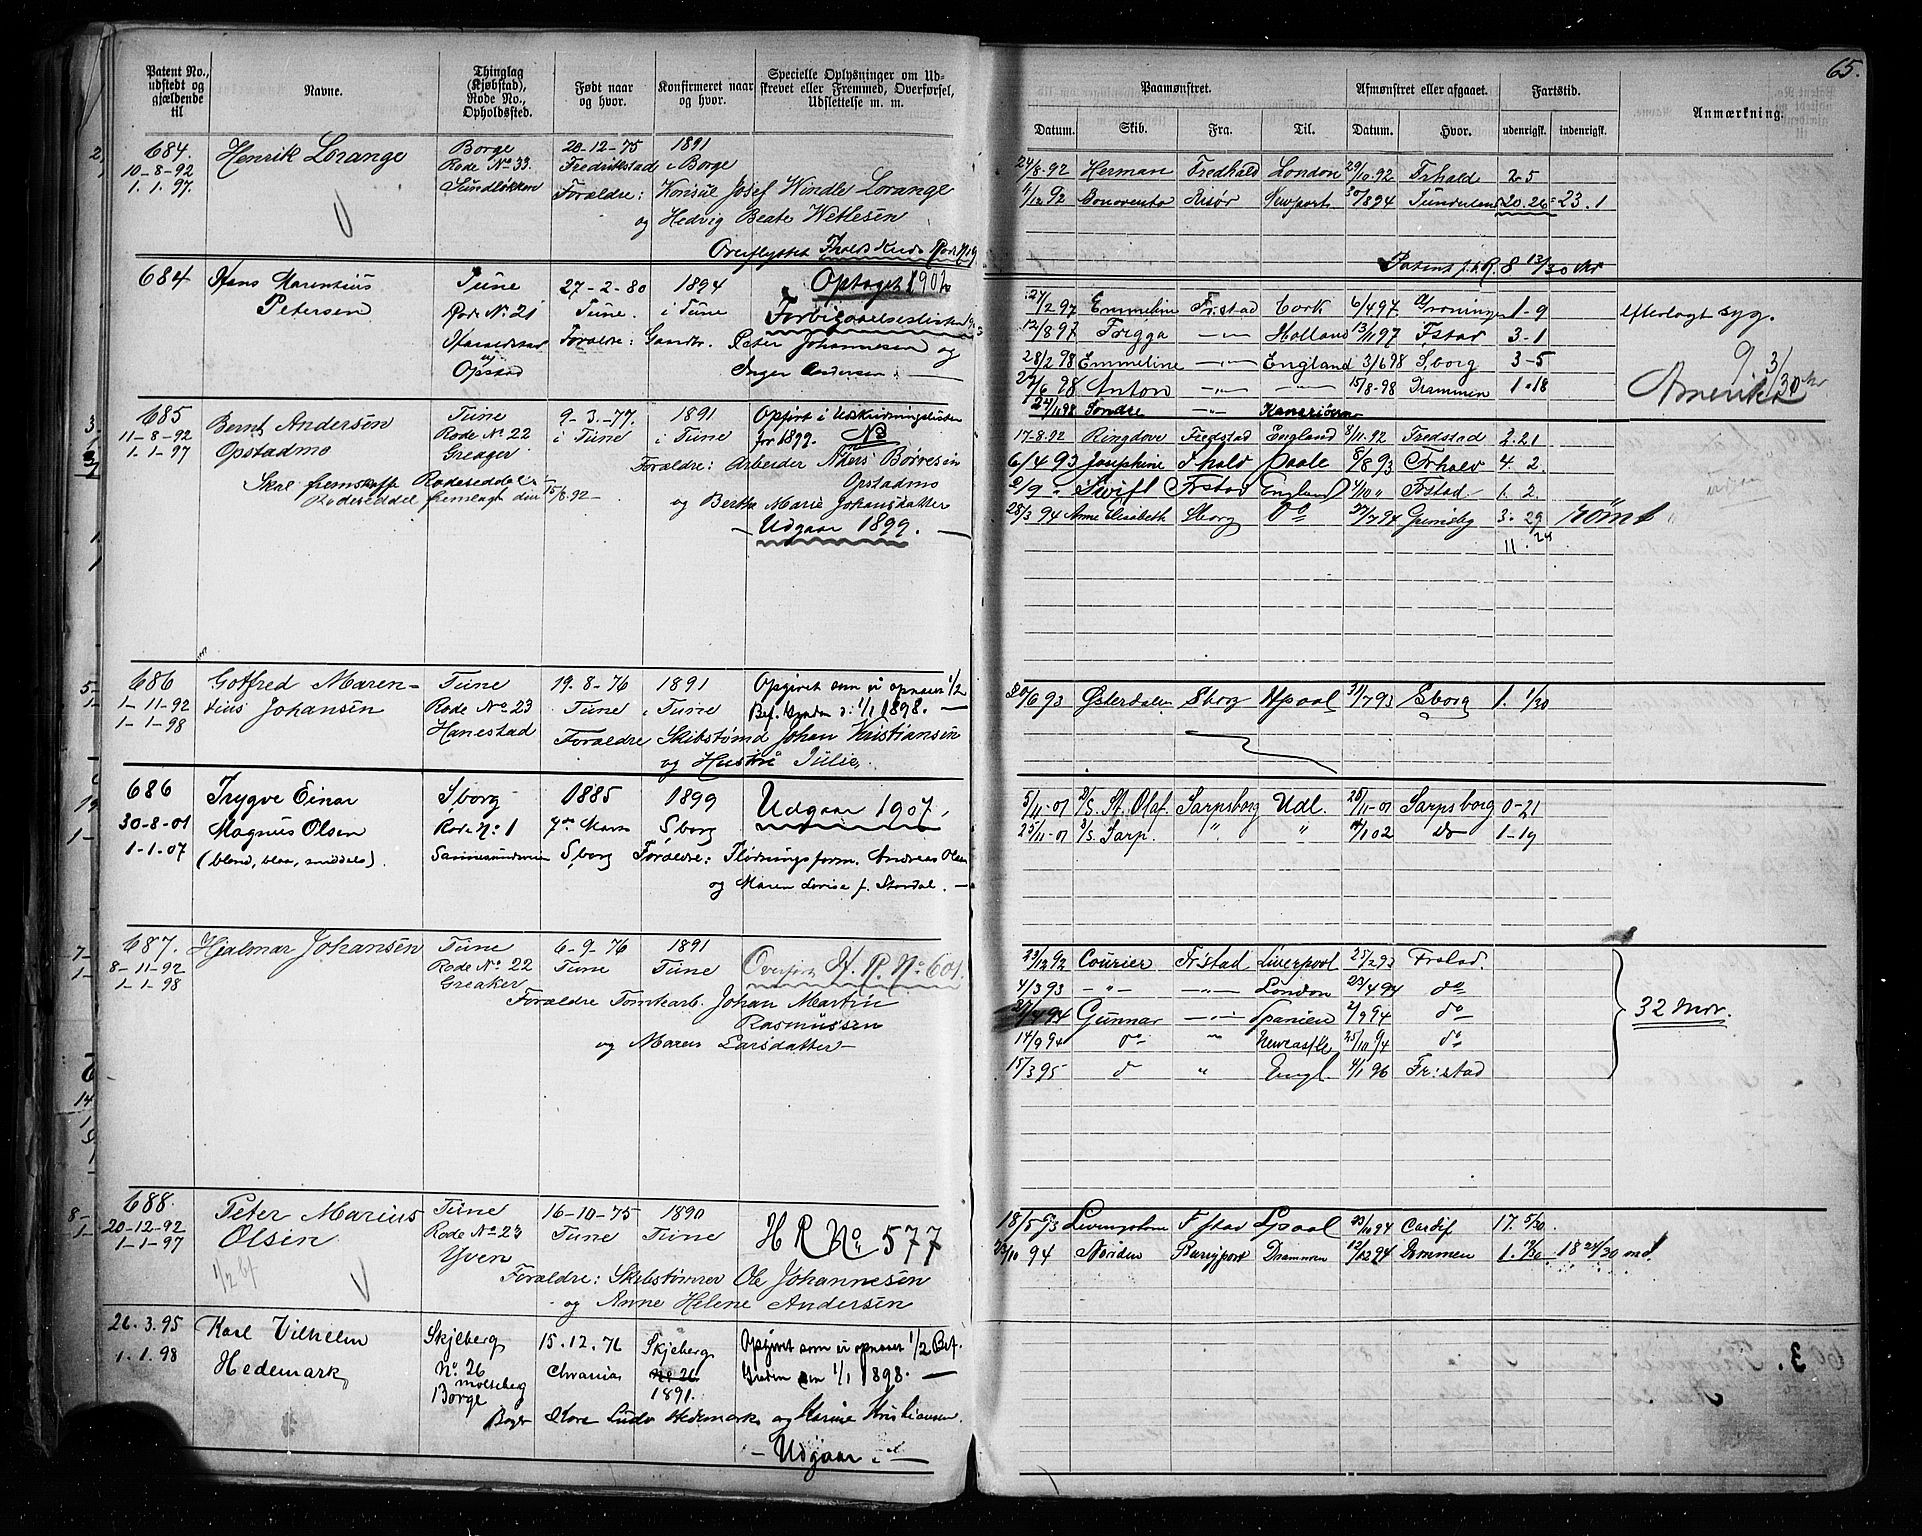 65.
Patent No., udstedt og gjældende til
Navne.
Thinglag (Kjøbstad), Rode No., Opholdssted.
Født naar og hvor.
Konfirmeret naar og hvor.
Specielle Oplysninger om Udskrevet eller Fremmed, Overførsel, Udslettelse m. m.
Paamønstret.
Afmønstret eller afgaaet.
Fartstid.
Anmærkning.
Datum. Skib. Fra. Til. Datum. Hvor. udenrigsk. indenrigsk.
684. Henrik Lorange Borge 20-12-75 1891
10-8-92 Rode No 33 Fredrikstad i Borge
1.1.97. Sundløkken Forældre: Konsul Josef Windle Lorange
og Hedvig Beate Wetlesen
24/8-92 Herman Fredhald London 29/10.92 Frhald 2 5
Risør Newport 30/1 894 20.26 23.1
684 Hans Marentius Tune 27-2-80 1894 Optaget 1902
Petersen Rode No 21 Tune. i Tune
Forældre: Peter Johannesen og
Opstad Inger Andersen.
27/2 97 Emmeline Fr:stad Cork 6/4 97 Groningen 1-9
12/8 97 Frigga -"- Holland 13/11 97 Fstad 3-1
28/2 98 Emmeline -"- England 3/6 98 Sborg 3-5
27/6 98 Anton -"- -"- 15/8-98 Drammen 1-18
24/11 98 Søndre -"- Kanariøerne
efterlagt syg.
9 3/30
Amerika
685 Bernt Andersen Tune 9-3-77. 1891 Opført i Udskrivningslisten
11-8-92 Opstadmo Rode No 22 i Tune i Tune for 1899. No
1-1-97 Greager Forældre: Arbeider Børresen
Opstadmo
og Bertha Marie Johansdatter
- Udgaar 1899. -
Skal fremskaffe Rodeseddel
Rodeseddel fremlagt den 15/8.92-
17-8.92 Ringdove Fredstad England 8/11.92 Fredstad 2.21
6/4 93 Josephine Fhald Poole 8/8 93 Frhald 4. 2.
2/9 " Swift Frstad England 4/10 " Frstad 1. 2.
28/3 94 Anne Elisabeth Sborg Do 27/7 94 Grimsby 3. 29 Rømt
11. 24
686 Gotfred Maren- Tune 19-8-76 1891
1-11-92 tius Johansen Rode No 23 Tune i Tune
1-1-98 Hanestad Forældre Skibstømd Johan Kristiansen
og Hustru Julie.
20/6 93 Østerdalen Sborg 31/7 93 Sborg 1. 1/30
686 Trygve Einar Sborg 1885 1899 Udgaar 1907.
30-8-01 Magnus Olsen Rode No 1 7de Marts Sborg
1-1-07 (blond, blaa, middels). Sborg Forældre: Flødningsform. Andreas Olsen
og Maren Lovise f. Stordal.
5/11-01 St. Olaf. Sarpsborg Udl. 20/11-01 Sarpsborg 0-21
25/11-01 Sarp. " " 1 02 do 1-19
687. Hjalmar Johansen Tune 6-9-76 1891
8-11-92 Rode No 22 Tune Tune Overført H. R. No 601.
1-1-98 Greaker Forældre Tomtearb. Johan Martin
Rasmussen
og Maren Larsdatter
23/12 92 Courier Fr:stad Liverpool 25/2 93 Frstad.
4/3 93 -"- -"- London 23/4 94 do
94 Gunnar -"- Spanien 2/9 94 do
14/9 94 do " Newcastle 25/10 94 do
15/3 95 d " Engl. 4/1 96 Fr:stad
32 Mdr.
688. Peter Marius Tune 16-10-75 1890 H R No 577
20-12-92 Olsen Rode No 23 Tune Tune
1-1-97 Yven
Forældre: Skibstømrer Ole Johannesen
og Anne Helene Andersen
18/5 93 Fstad 94 Cardif 17. 5/30
94 Norden Drammen 12/12 94 Drmmen 1. 19/30 18 24/30 md.
26.3.95 Karl Vilhelm Skjeberg 15.12.76 Skjeberg Opgivet som ei opnaaet 1/2 Bef.
1.1.98 Hedemark No 26 No 26 1/1 1898. -
Borge 1891.
Hedemark og Karine Kristiansen.
- Udgaar. -
3.